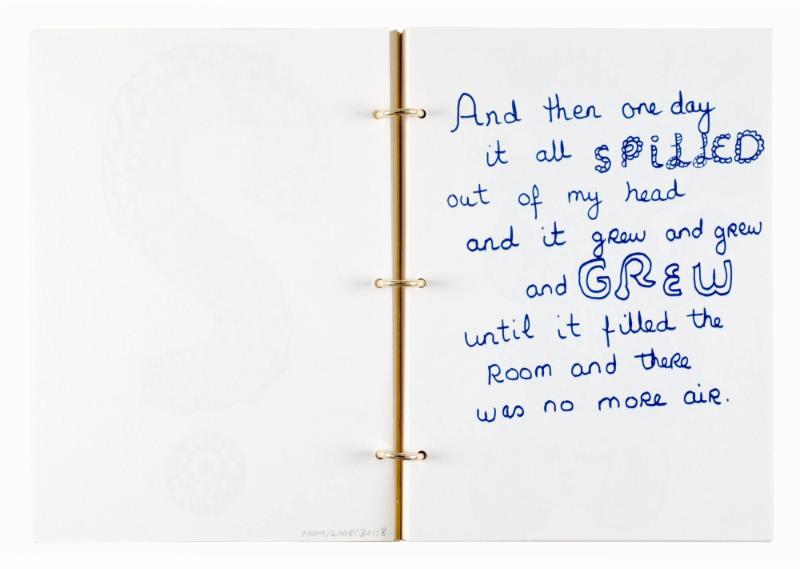 And then one day
it all SPiLLED
out of my head
and it gRew and gRew
and GREW
until it filled the
Room and theRe
was no moRe aiR.